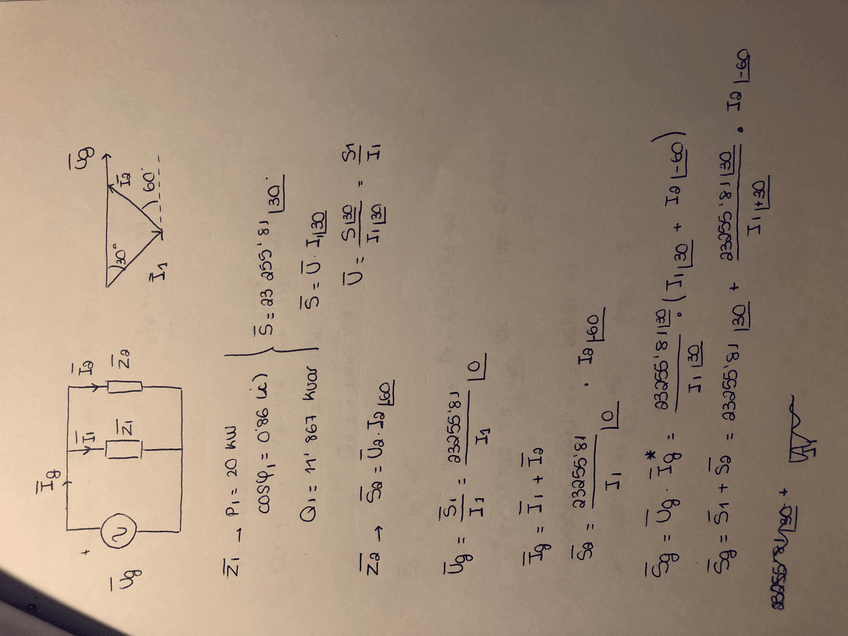 2.
U̅g
+
I̅g
I̅1
Z̅1
I̅2
Z̅2
U̅g
30°
I̅1
I̅2
60°
Z̅1 → P1 = 20 kW
cosφ1 = 0'86 (i)
Q1 = 11'867 kvar
S̅ = 23 255'81 |30°
S̅ = U̅ · I1|30
U̅ = S|30 / I1|30 = S1 / I1
Z̅2 → S̅2 = U̅2 · I2|60
U̅g = S̅1 / I1 = 23255'81 / I1 |0
I̅g = I̅1 + I̅2
S̅2 = 23255'81 / I1 |0 · I2|60
S̅g = U̅g · I̅g* = 23255'81|30 / I1|30 · (I1|30 + I2|-60)
S̅g = S̅1 + S̅2 = 23255'81|30 + 23255'81|30 / I1|+30 · I2|-60